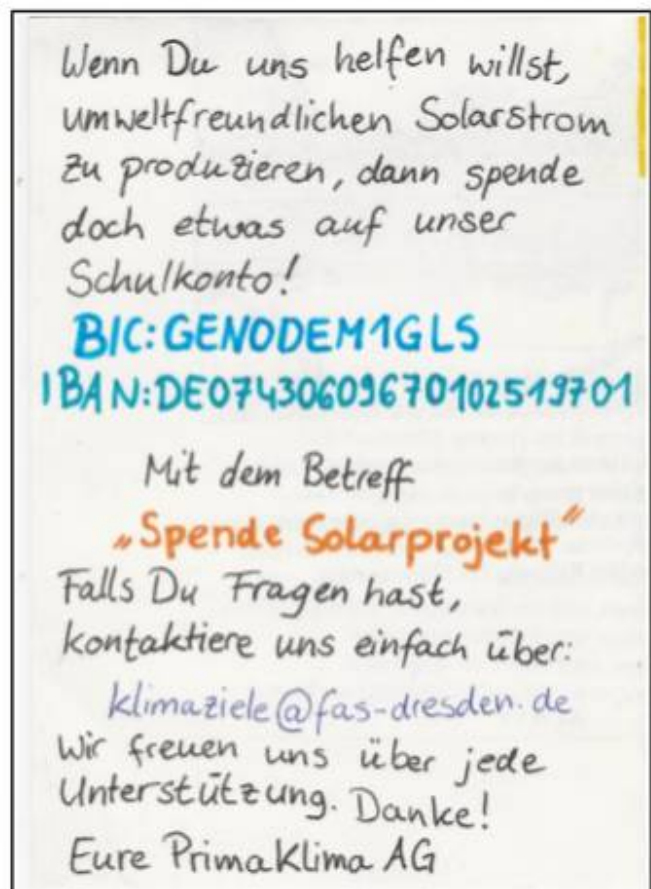 Wenn Du uns helfen willst,
umweltfreundlichen Solarstrom
zu produzieren, dann spende
doch etwas auf unser
Schulkonto!
BIC:GENODEM1GLS
IBAN:DE07430609670102519701
Mit dem Betreff
„Spende Solarprojekt"
Falls Du Fragen hast,
kontaktiere uns einfach über:
klimaziele@fas-dresden.de
Wir freuen uns über jede
Unterstützung. Danke!
Eure PrimaKlima AG